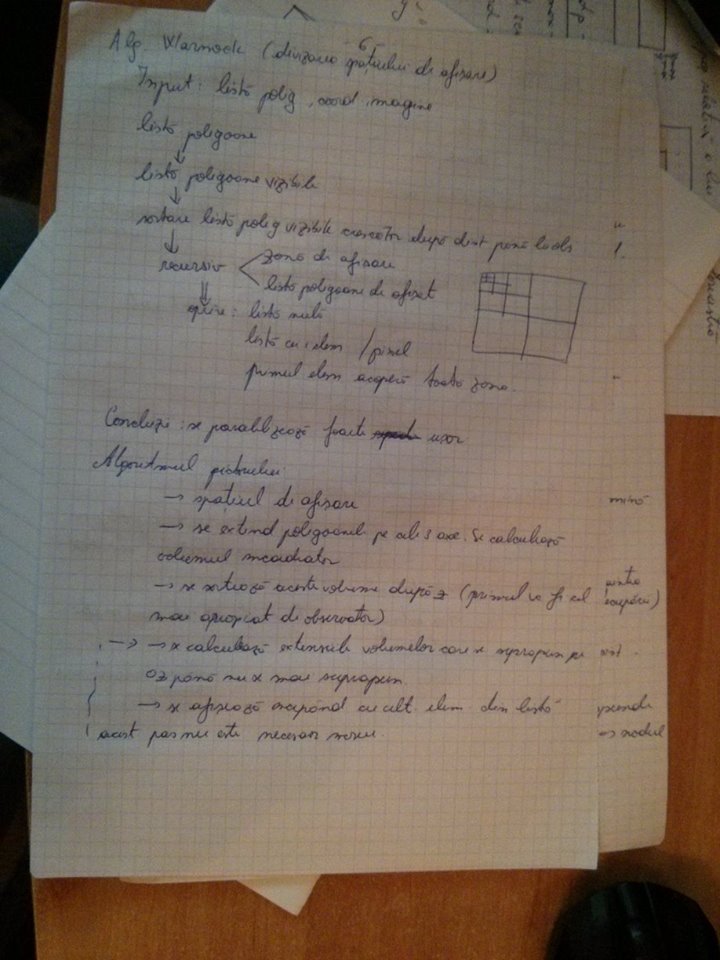 6
Alg. Warnock (divizarea spatiului de afisare)
Input: listă polig, coord, imagine
listă poligoane
listă poligoane vizibile
sortare listă polig vizibile crescător după dist până la obs
recursiv
zonă de afisare
listă poligoane de afisat
oprire: listă nulă
listă cu 1 elem / pixel
primul elem acoperă toată zona.
Concluzie: se paralelizează foarte usor
Algoritmul pictorului
→ spatiul de afisare
→ se extind poligoanele pe cele 3 axe. Se calculează
volumul incadrator
→ se sortează aceste volume după z (primul va fi cel
mai apropiat de observator)
→ se calculează extensiile volumelor care se suprapun pe
oz până nu se mai suprapun
→ se afisează incepând cu ult. elem din listă
acest pas nu este necesar mereu